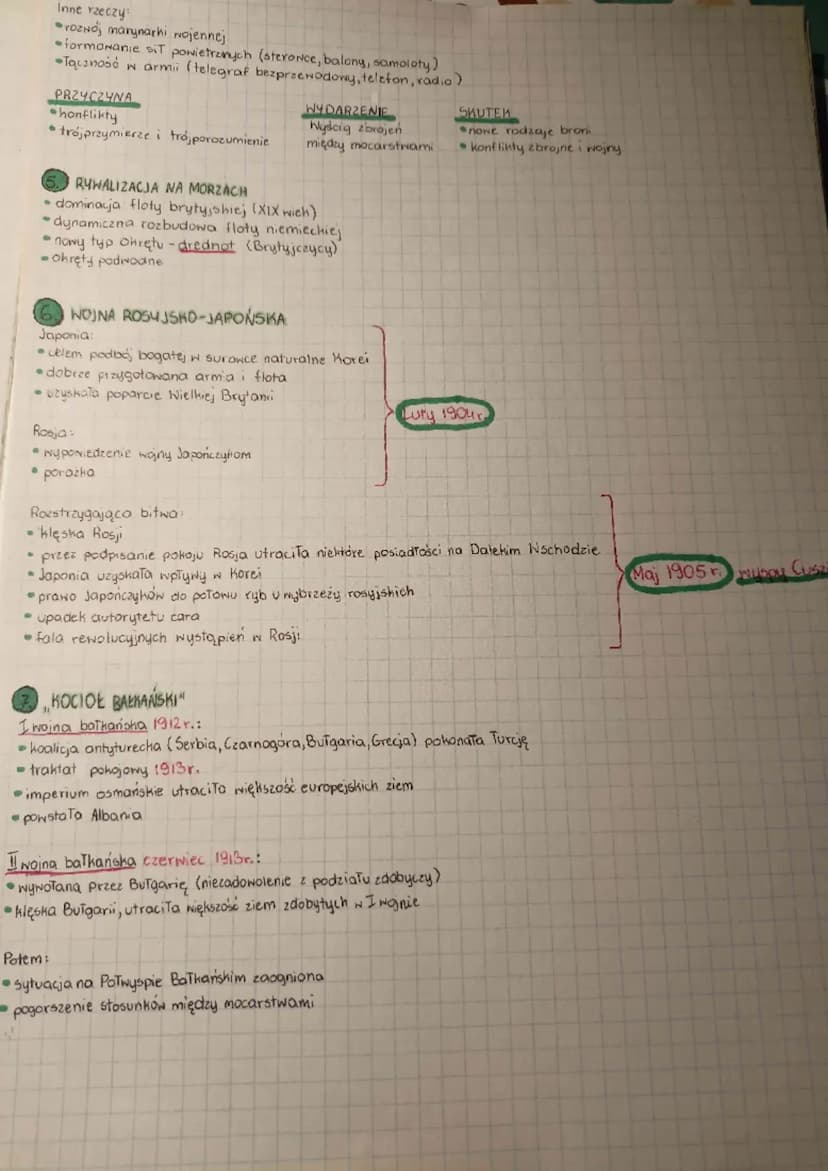 Inne rzeczy:
• rozwój marynarki wojennej
• formowanie sił powietrznych (sterowce, balony, samoloty)
• łączność w armii (telegraf bezprzewodowy, telefon, radio)
PRZYCZYNA
• konflikty
• trójprzymierze i trójporozumienie
WYDARZENIE
Wyścig zbrojeń
między mocarstwami
SKUTEK
• nowe rodzaje broni
• konflikty zbrojne i wojny
5. RYWALIZACJA NA MORZACH
• dominacja floty brytyjskiej (XIX wiek)
• dynamiczna rozbudowa floty niemieckiej
• nowy typ okrętu - drednot (Brytyjczycy)
• okręty podwodne
6. WOJNA ROSYJSKO-JAPOŃSKA
Japonia:
• celem podbój bogatej w surowce naturalne Korei
• dobrze przygotowana armia i flota
• uzyskała poparcie Wielkiej Brytanii
Luty 1904r.
Rosja:
• wypowiedzenie wojny Japończykom
• porażka
Rozstrzygająca bitwa:
• klęska Rosji
• przez podpisanie pokoju Rosja utraciła niektóre posiadłości na Dalekim Wschodzie
• Japonia uzyskała wpływy w Korei
Maj 1905 r. wyspy
• prawo Japończyków do połowu ryb u wybrzeży rosyjskich
• upadek autorytetu cara
• fala rewolucyjnych wystąpień w Rosji
7. „KOCIOŁ BAŁKAŃSKI"
I wojna bałkańska 1912r.:
• koalicja antyturecka (Serbia, Czarnogóra, Bułgaria, Grecja) pokonała Turcję
• traktat pokojowy 1913r.
• imperium osmańskie utraciło większość europejskich ziem
• powstała Albania
II wojna bałkańska czerwiec 1913r.:
• wywołana przez Bułgarię (niezadowolenie z podziału zdobyczy)
• klęska Bułgarii, utraciła większość ziem zdobytych w I wojnie
Potem:
• sytuacja na Półwyspie Bałkańskim zaogniona
• pogorszenie stosunków między mocarstwami